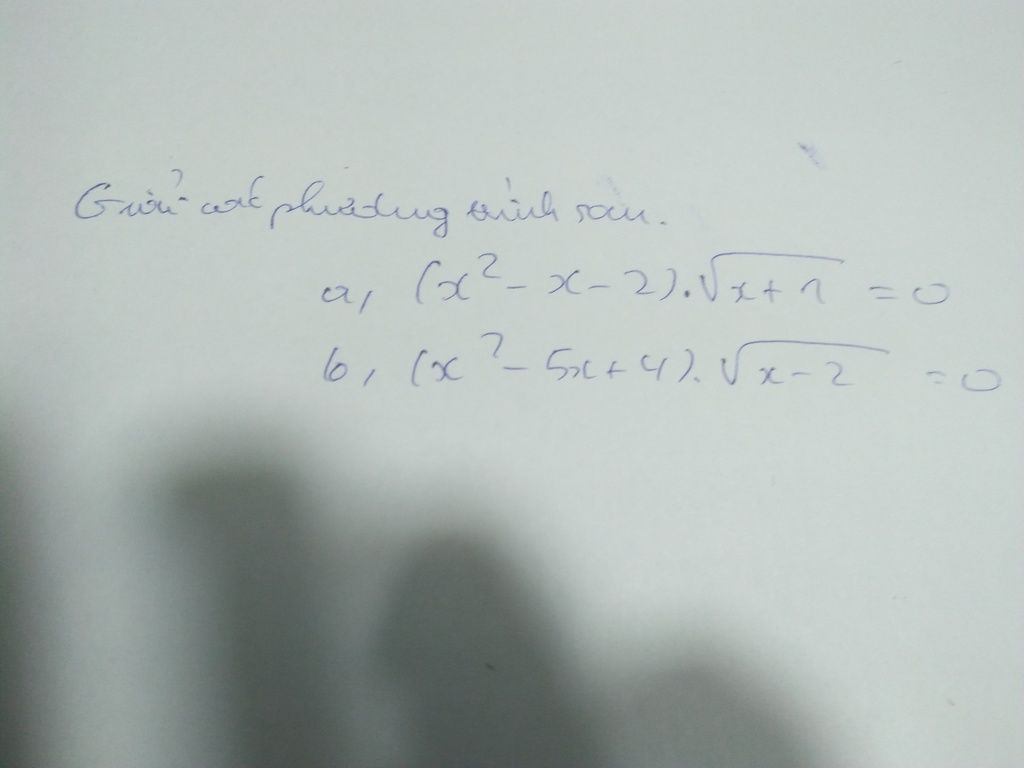 Giải các phương trình sau.
a, (x² - x - 2).√(x+1) = 0
b, (x² - 5x + 4).√(x-2) = 0